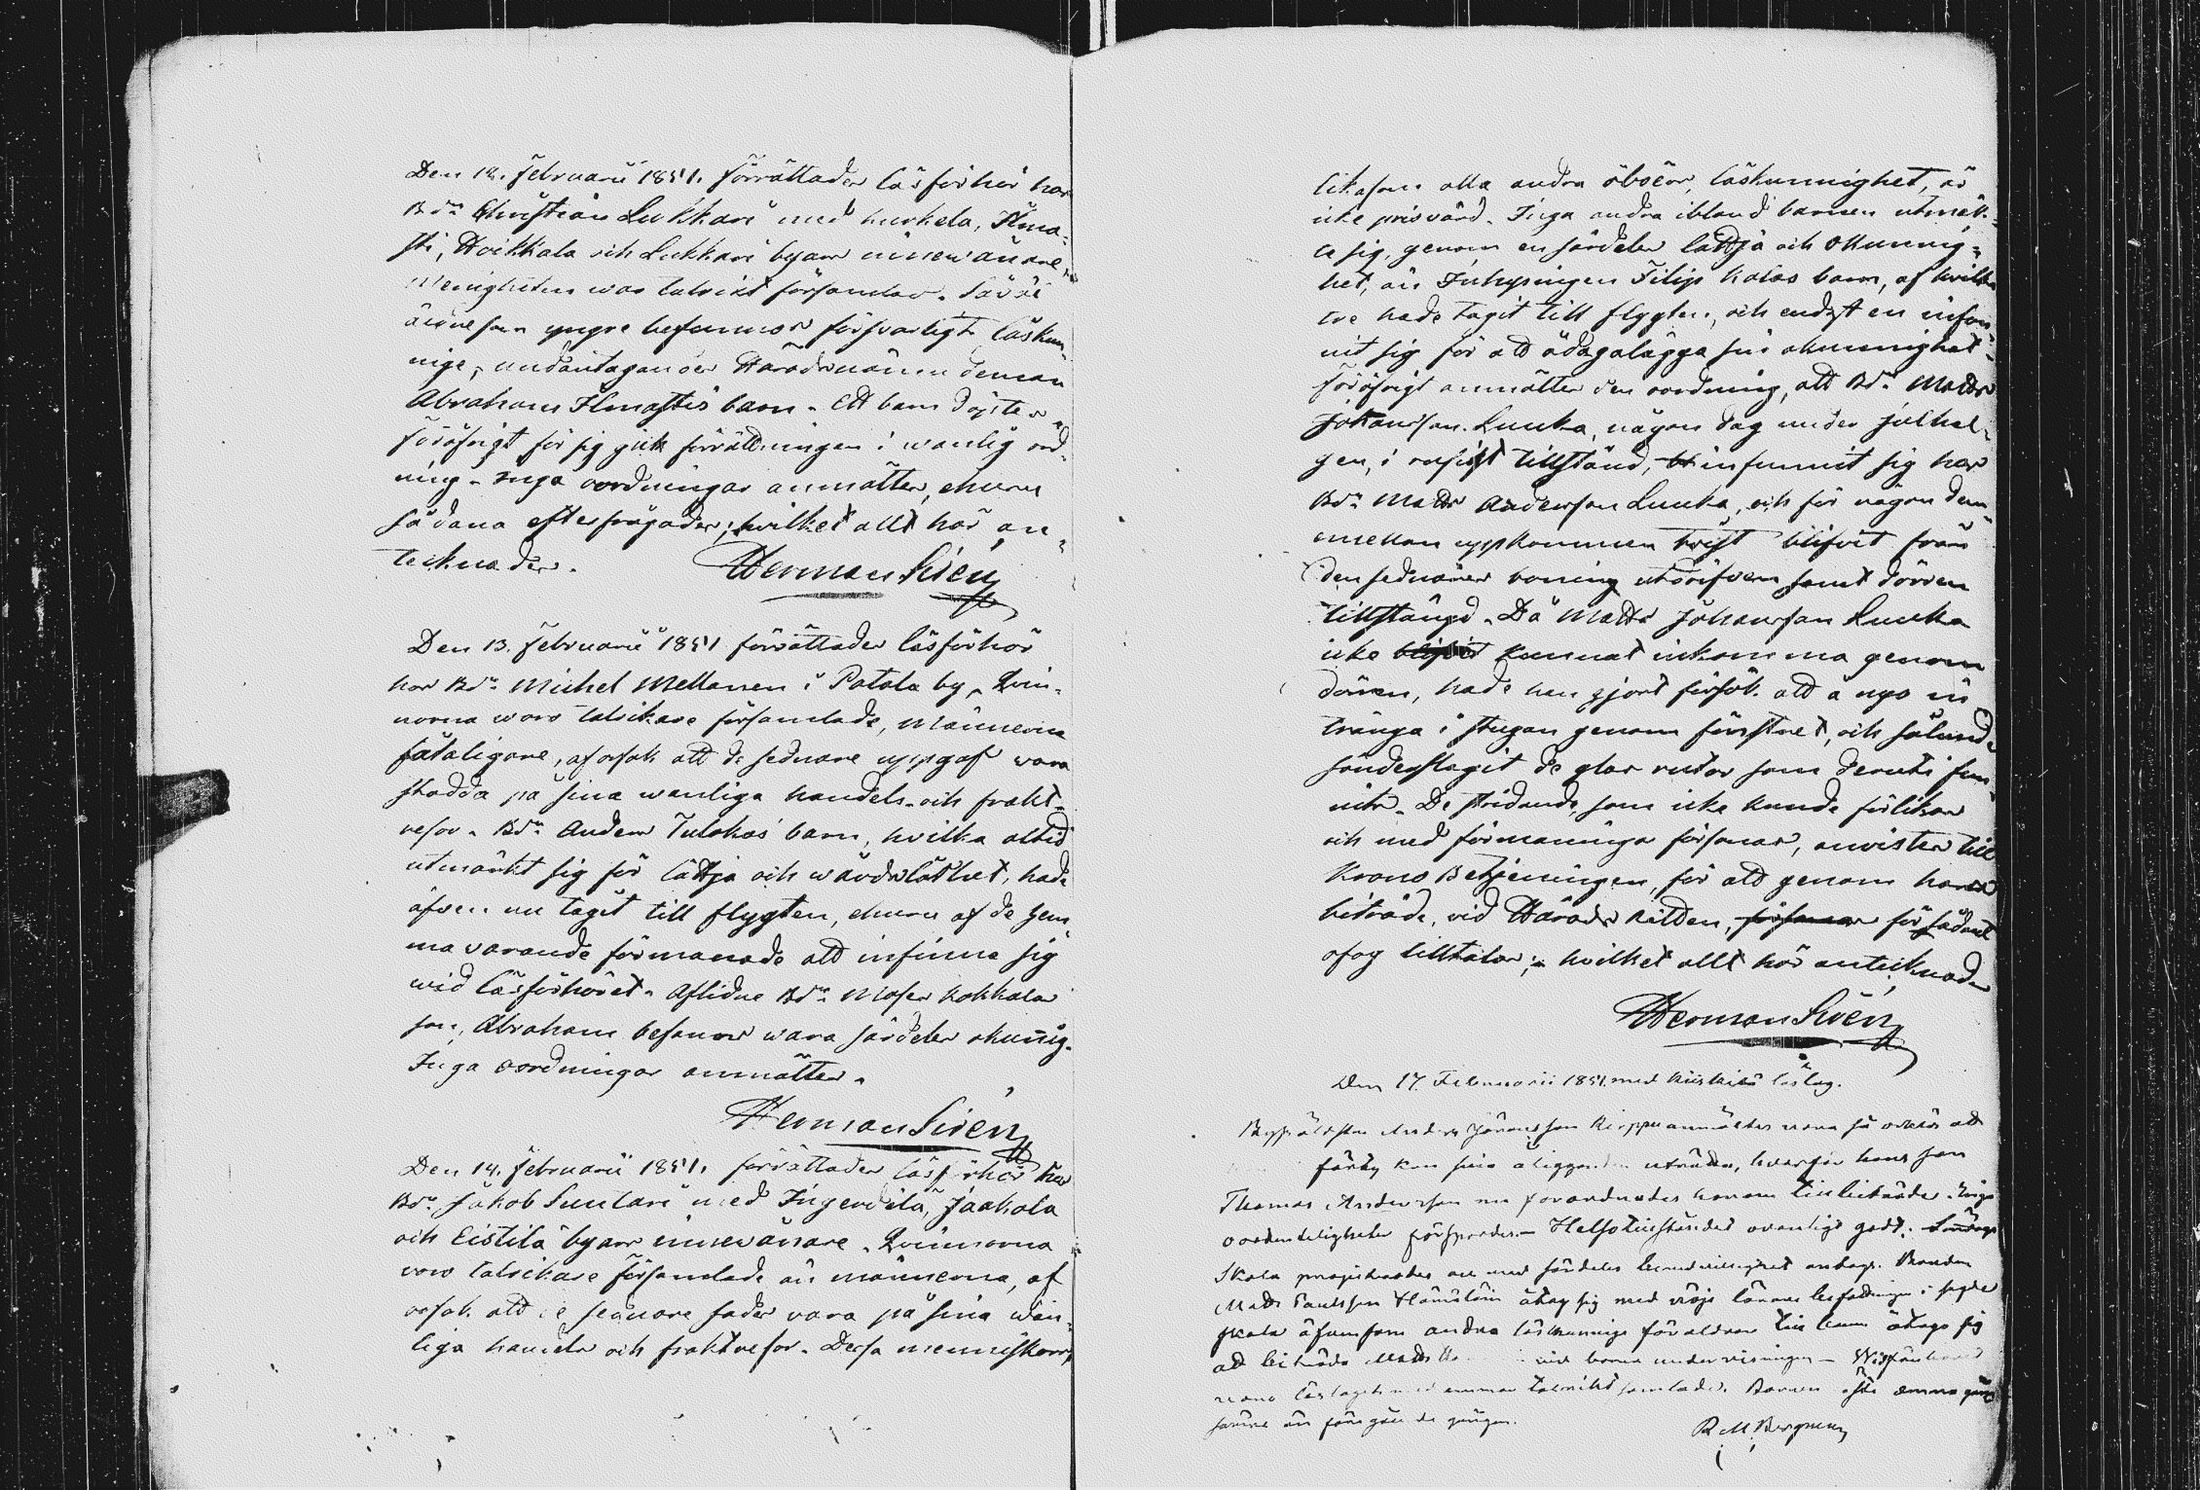 Den 12. Februarii 1851. förrättades läsförhör hos
Bdn Christian Lukkari med Kurkela, Ilma-
sti, Hoikkala och Lukkari byars innevånare,
Menigheten war talrikt församlad. Såväl
äldre som yngre befunnos försvarligt läskun-
nige, undantagandes Häradsnämndeman
Abraham Ilmastis barn. Ett barn döptes
föröfrigt för sig gick förrättningen i wanlig ord-
ning. Inga oordningar anmältes, ehuru
sådana efterfrågades; hvilket allt här an-
tecknades. Herman Sirén
Den 13. Februarii 1851 förrättades läsförhör
hos Bdn Michel Mellanen i Potola by. Qvin-
norna woro talrikare församlade, Männerna
fåtaligare, af orsak att de sednare uppgafs wara
stadda på sina wanliga handels- och frakt-
resor. Bdn Anders Tulokas barn, hvilka altid
utmärkt sig för lättja och wårdslöshet, hade
äfven nu tagit till flygten, ehuru af de hem-
mavarande förmanade att infinna sig
wid läsförhöret. Aflidne Bdn Moses Kokkolas
son, Abraham befanns wara särdeles okunnig.
Inga oordningar anmältes.
Herman Sirén
Den 14. Februarii 1851. förrättades läsförhör hos
Bdn Jakob Suutari med Ingerdilä, Jaakola
och Eistilä byars innevånare. Qvinnorna
voro talrikare församlade än männerna, af
orsak att de sednare sades vara på sina wan-
liga handels och fraktresor. Dessa menniskors,
likasom alla andra öboers, läskunnighet, är
icke prisvärd. Inga andra ibland barnen utmärk-
te sig, genom en särdeles lättja och okunnig-
het, än Inhysingen Filip Kolas barn, af hvilka
tre hade tagit till flygten, och endast en infun-
nit sig för att ådagalägga sin okunnighet.
Föröfrigt anmältes den oordning, att Bdn Matts
Johansson Luukka, någon dag under julhel-
gen, i rusigt tillstånd, infunnit sig hos
Bdn Matts Andersson Luukka, och för någon dem
emellan uppkommen twist blifvit från
den sednares boning utdrifven samt dörren
tillstängd. Då Matts Johansson Luukka
icke blifvit kunnat inkomma genom
dörren, hade han gjort försök att å nyo in
tränga i stugan genom fönstret, och sålunda
sönderslagit de glas rutor som deruti fun-
nits. De stridande, som icke kunde förlikas
och med förmaninga försonas, anvistes till
Krono Betjeningen, för att genom hans
biträde, vid Härads Rätten, försonas för sådant
ofog tilltalas; hvilket allt här antecknades
Herman Sirén
Den 17. Februarii 1851. med Kiiskilä läslag.
Byäldsten Anders Jöransson anmältes vara så att
han sina åligganden uträtta, hvarför hans son
Thomas Andersson nu förordnades honom till biträde. Inga
oordentligheter förspordes. Helsotillståndet ovanligt godt. Söndags
Skola projecterades och med särdeles beredvillighet antogs. Bonden
Matts Paulsson åtog sig med nöje lärare befattningen i sagde
skola äfvensom andra läskunniga föräldrar till barn åtogo sig
att biträda Matts vid barna undervisningen.
läslagets talrikt samlade. Barnen
än föregående gången.
R M Bergman